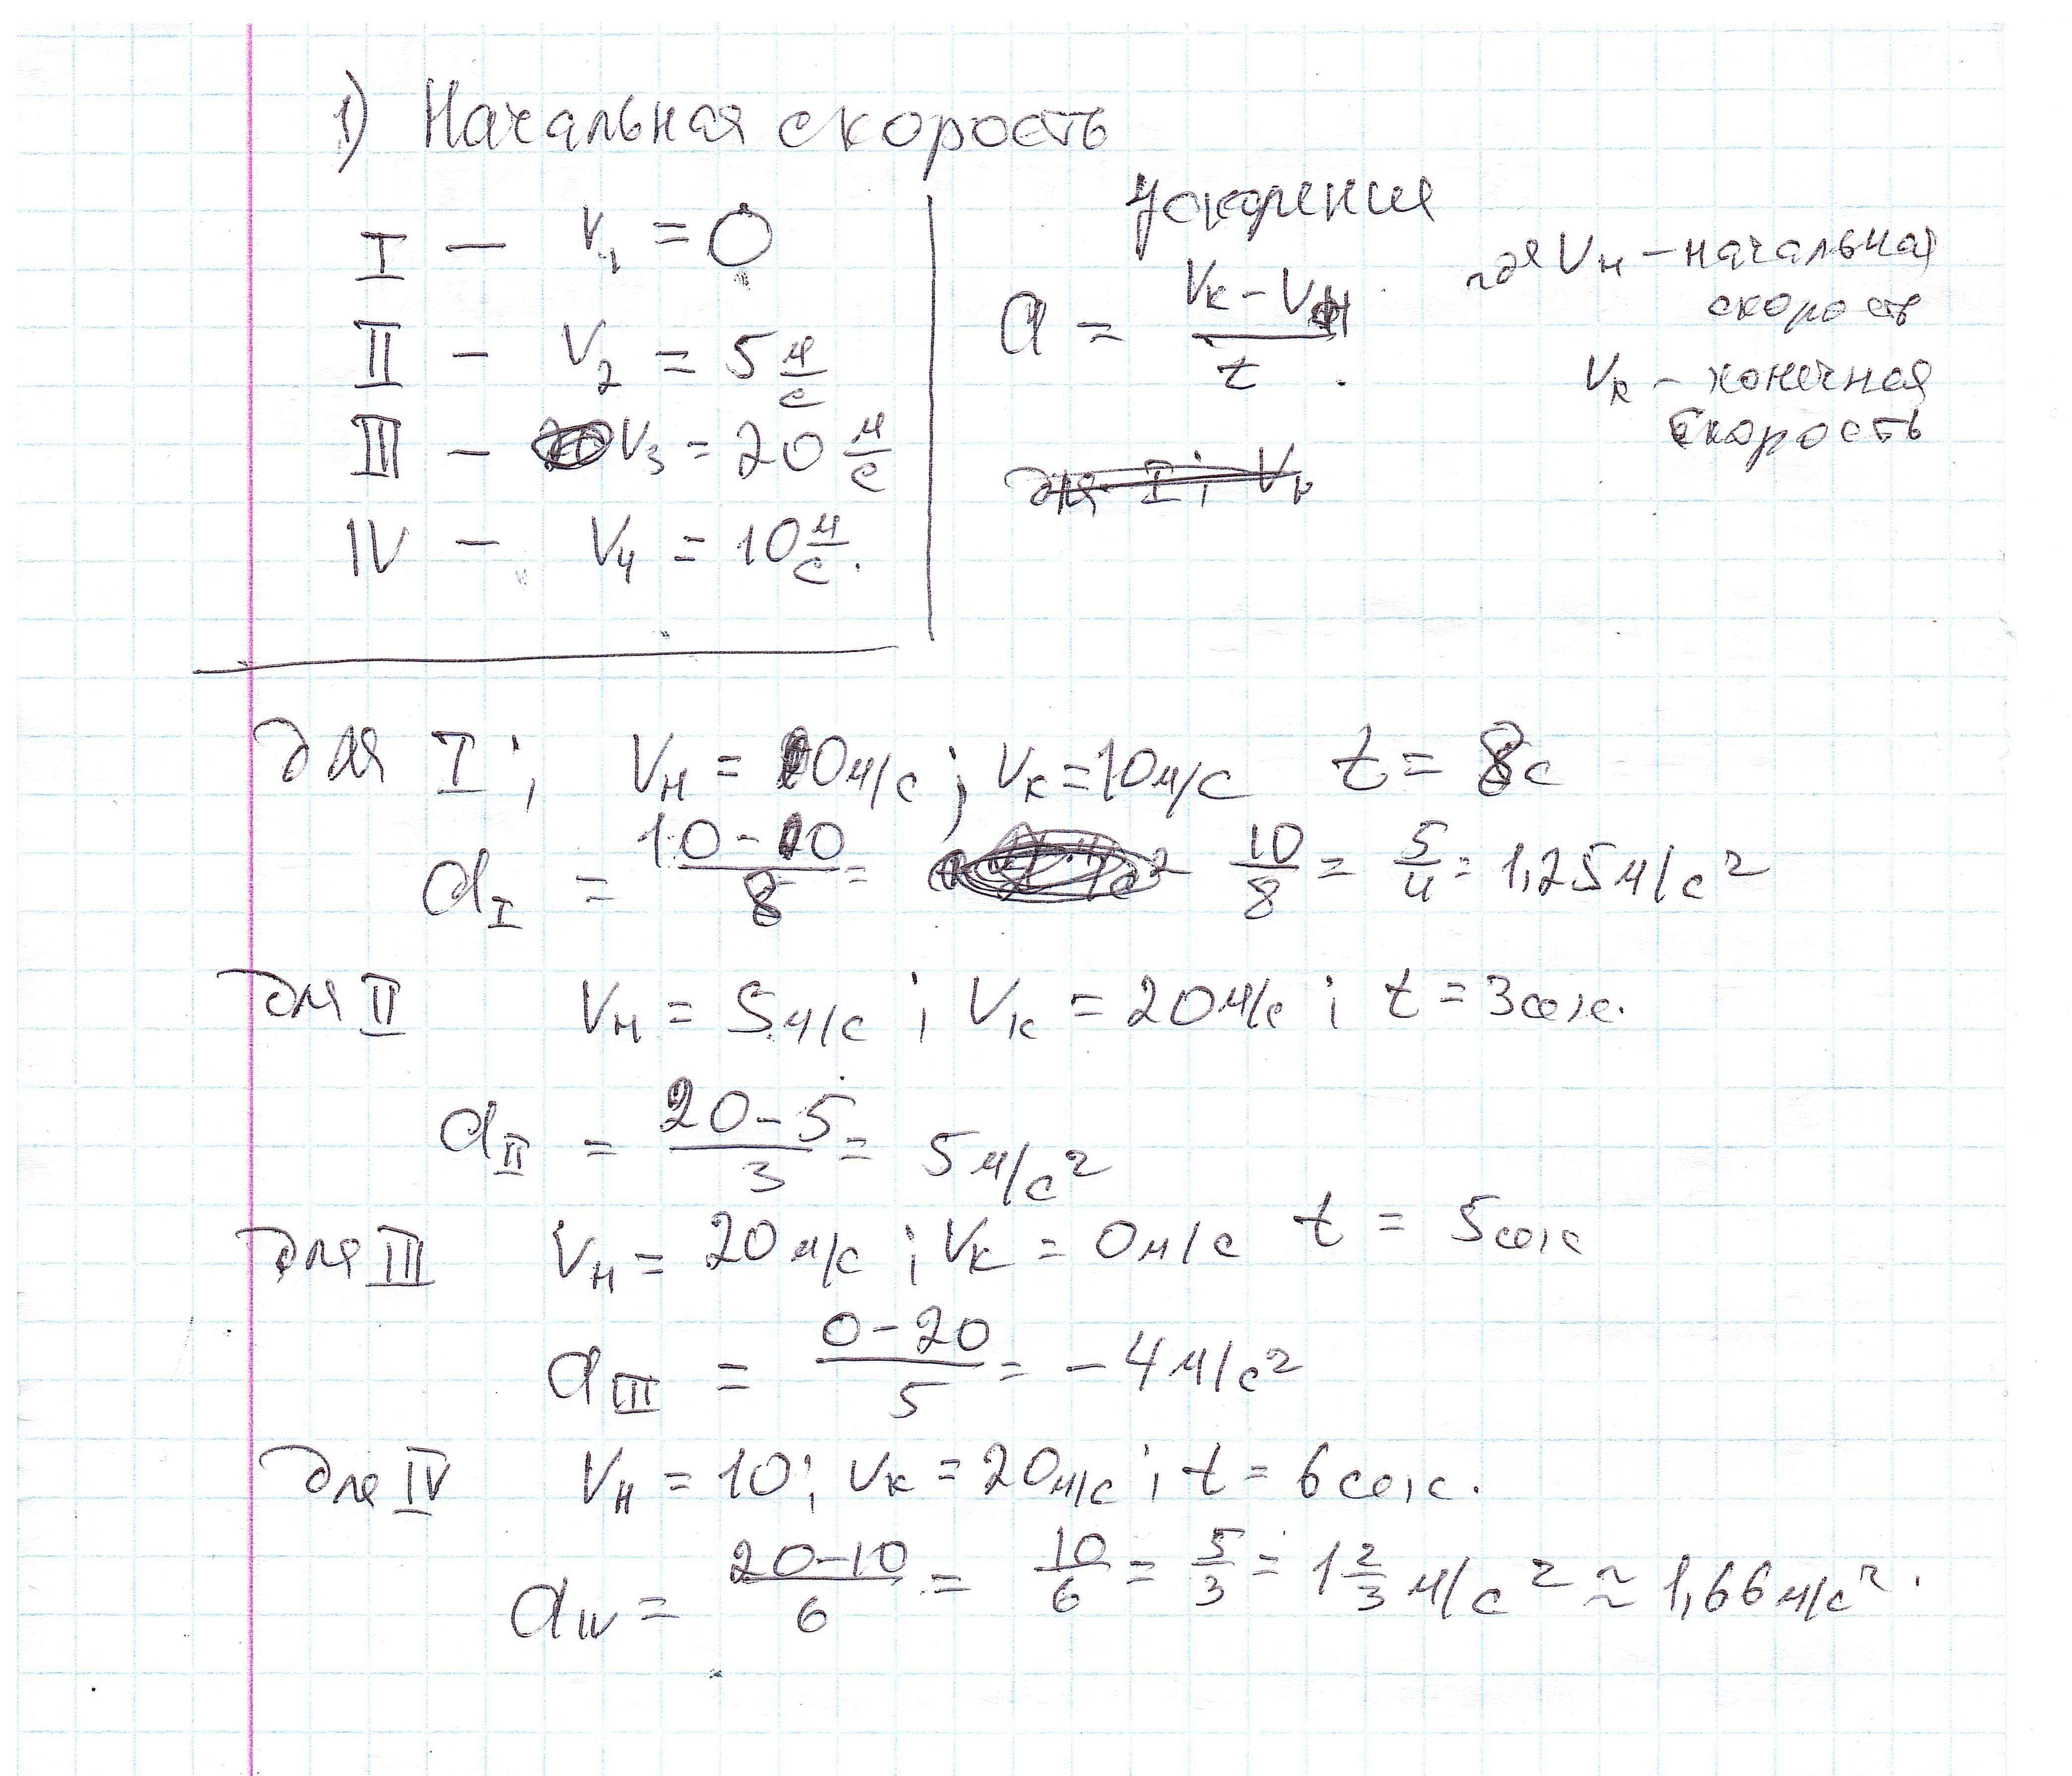 1) Начальная скорость
I — V₁ = 0
II – V₂ = 5 м/с
III – V₃ = 20 м/с
IV – V₄ = 10 м/с.
ускорения
a = (Vк – Vн)/t.
где Vн – начальная
скорость
Vк – конечная
скорость
для I; Vн = 0м/с; Vк = 10м/с t = 8с
a_I = (10 – 0)/8 = 10/8 = 5/4 = 1,25м/с²
для II Vн = 5м/с; Vк = 20м/с; t = 3сек.
a_II = (20 – 5)/3 = 5м/с²
для III Vн = 20м/с; Vк = 0м/с t = 5сек
a_III = (0 – 20)/5 = – 4м/с²
для IV Vн = 10; Vк = 20м/с; t = 6сек.
a_IV = (20–10)/6 = 10/6 = 5/3 = 1 2/3 м/с² ≈ 1,66м/с².